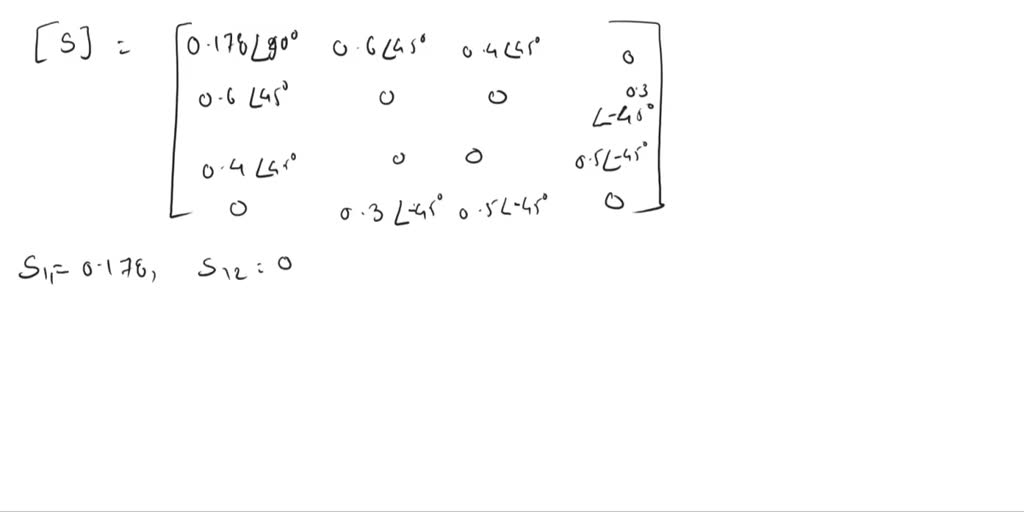 [S] = [ 0.178∠90° 0.6∠45° 0.4∠45° 0
0.6∠45° 0 0 0.3∠-45°
0.4∠45° 0 0 0.5∠-45°
0 0.3∠-45° 0.5∠-45° 0 ]
S11 = 0.178, S12 = 0